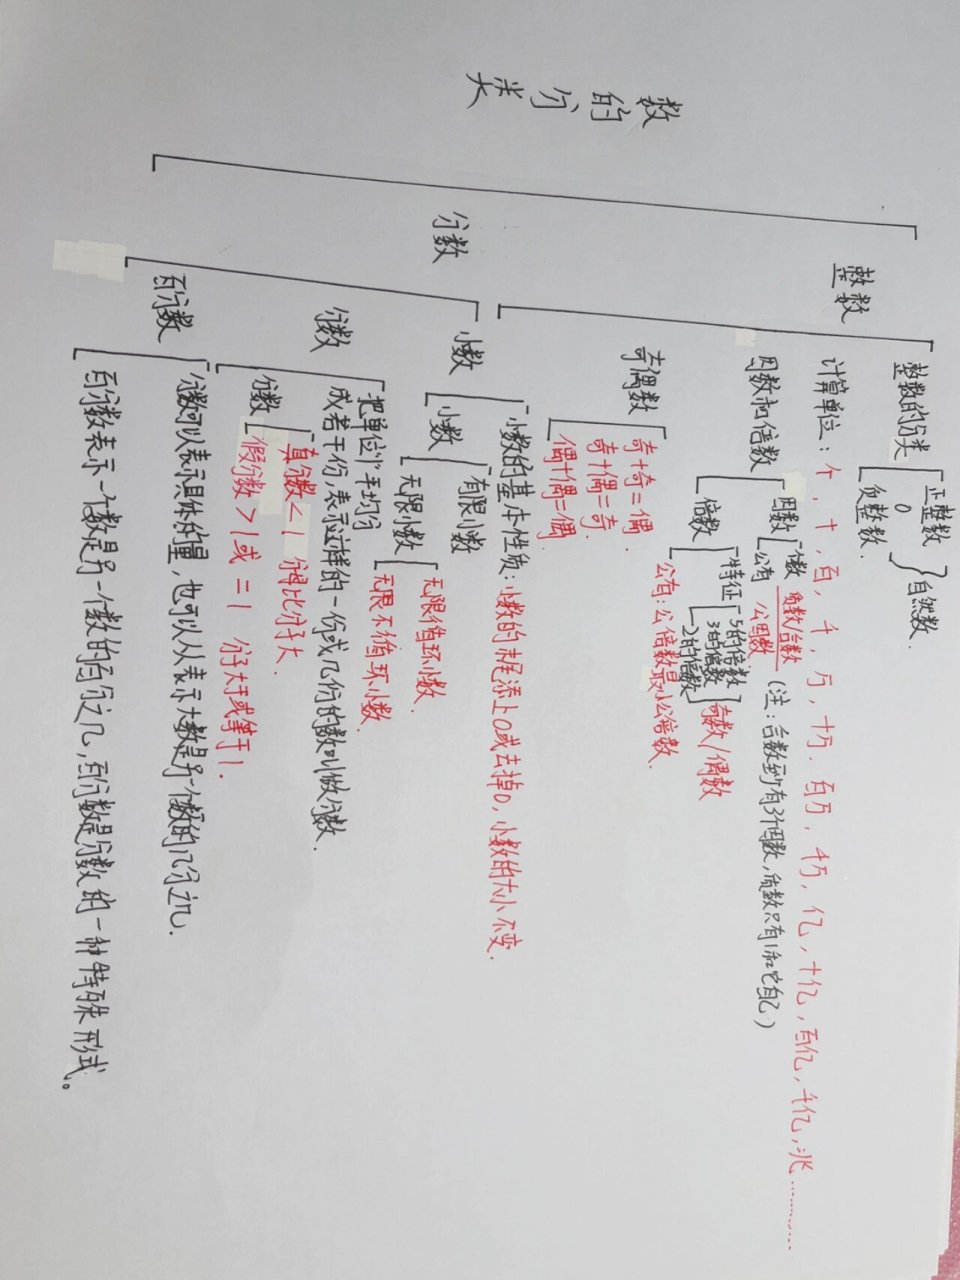 数的分类
整数
整数的分类
正整数
0
负整数.
自然数.
计算单位：个，十，百，千，万，十万，百万，千万，亿，十亿，百亿，千亿，兆…………
因数和倍数
因数
质数/合数
公有
公因数
(注：合数到有3个因数，质数只有1和它自己)
倍数
特征
5的倍数
3的倍数
2的倍数
奇数/偶数
公有：公倍数最小公倍数.
奇偶数
奇+奇=偶.
奇+偶=奇.
偶+偶=偶.
分数
小数
小数的基本性质：小数的末尾添上0或去掉0，小数的大小不变.
小数
有限小数
无限小数
无限循环小数.
无限不循环小数.
分数
把单位"1"平均分
成若干份，表示这样的一份或几份的数叫做分数.
分数
真分数<1 分母比分子大.
假分数>1或=1 分子大于或等于1.
百分数
分数可以表示具体的量，也可以从表示大数是另一个数的几分之几.
百分数表示一个数是另一个数的百分之几，百分数是分数的一种特殊形式。